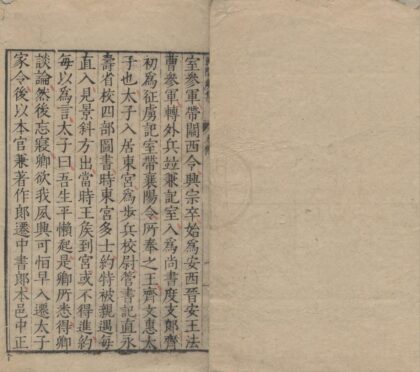 室參軍帶關西令興宗卒始爲安西晉安王法
曹參軍轉外兵竝兼記室入爲尚書度支郎齊
初爲征虜記室帶襄陽令所奉之王齊文惠太
子也太子入居東宮爲步兵校尉管書記直永
壽省校四部圖書時東宮多士約特被親遇每
直入見景斜方出當時王侯到宮或不得進約
每以爲言太子曰吾生平懶起是卿所悉得卿
談論然後忘寢卿欲我夙興可恒早入遷太子
家令後以本官兼著作郎遷中書郎本邑中正